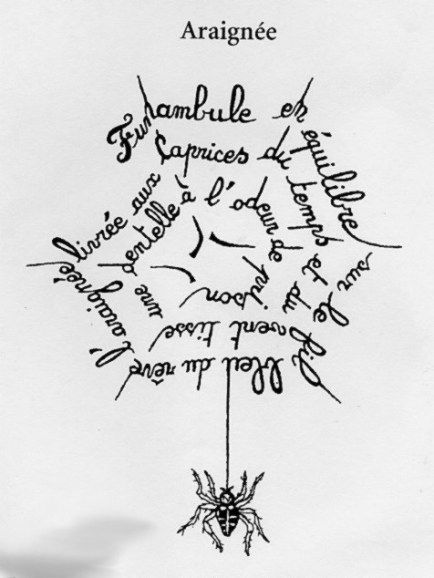 Araignée
Funambule en
équilibre
sur le fil
bleu du rêve
l'araignée
livrée aux
caprices du
temps et du
vent tisse
une dentelle
à l'odeur de
prison